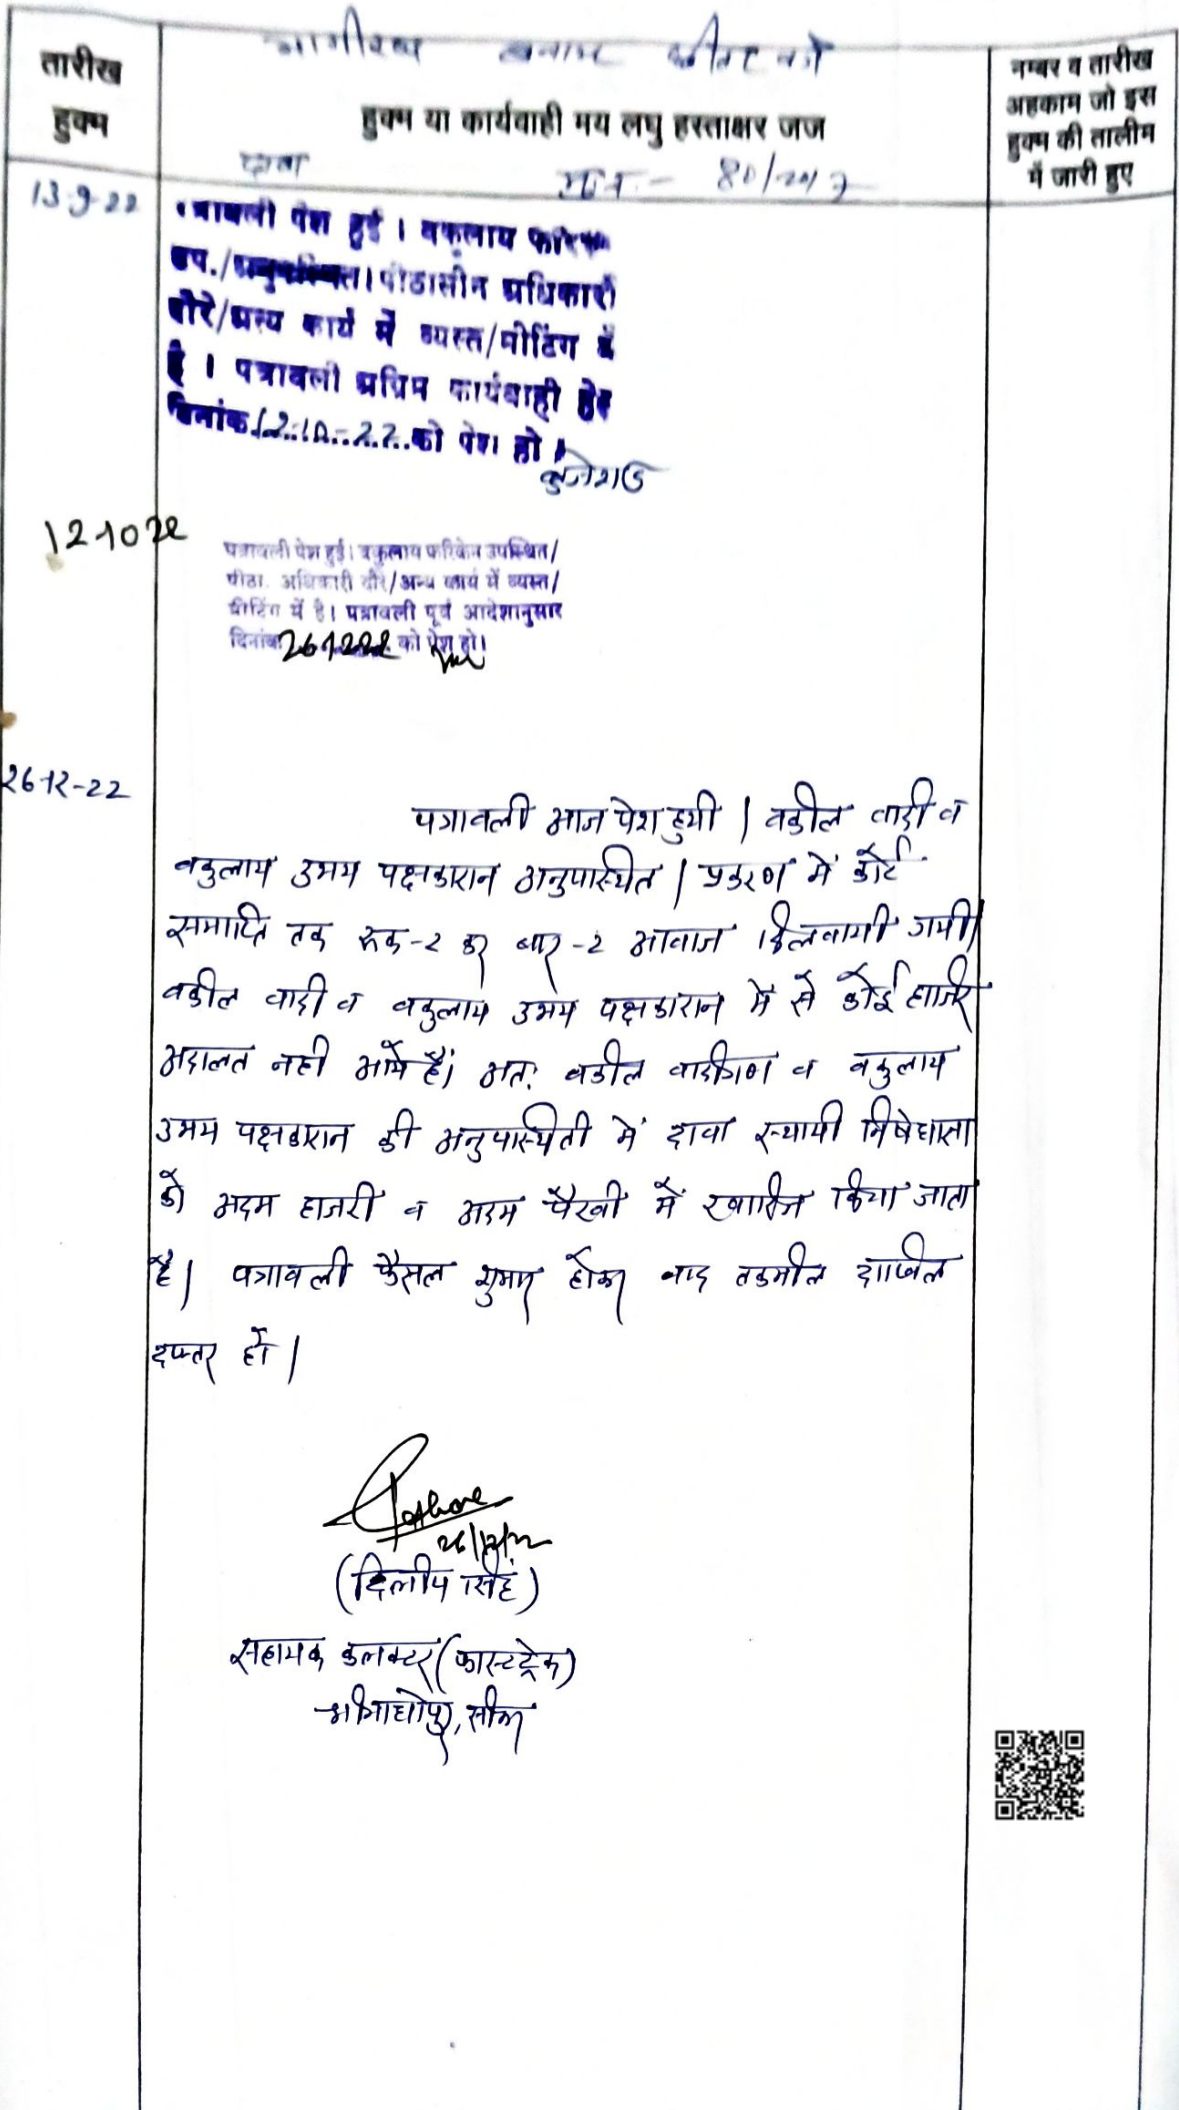 बनाम
तारीख
हुक्म
हुक्म या कार्यवाही मय लघु हस्ताक्षर जज
नम्बर व तारीख
अहकाम जो इस
हुक्म की तालीम
में जारी हुए
दावा 80/2017
13-9-22
पत्रावली पेश हुई । वकुलाय फरिकेन
उप./अनुपस्थित। पीठासीन अधिकारी
दौरे/अन्य कार्य में व्यस्त/मीटिंग में
है । पत्रावली अग्रिम कार्यवाही हेतु
दिनांक 12.10.-22 को पेश हो ।
12-10-22
पत्रावली पेश हुई। वकुलाय फरिकेन उपस्थित/
पीठा. अधिकारी दौरे/अन्य कार्य में व्यस्त/
मीटिंग में है। पत्रावली पूर्व आदेशानुसार
दिनांक 26-12-22 को पेश हो।
26-12-22
पत्रावली आज पेश हुयी | वकील वादी व
वकुलाय उभय पक्षकारान अनुपास्थित | प्रकरण में कोर्ट
समाप्ति तक रूक-2 कर बार-2 आवाज दिलवायी गयी|
वकील वादी व वकुलाय उभय पक्षकारान में से कोई हाजिर
अदालत नही आये हैं। अत: वकील वादीगण व वकुलाय
उभय पक्षकारान की अनुपास्थिती में दावा स्थायी निषेधाज्ञा
को अदम हाजरी व अदम पैरवी में खारिज किया जाता
है| पत्रावली फैसल शुमार होकर बाद तकमील दाखिल
दफ्तर हो |
26/12/22
(दिलीप सिंह)
सहायक कलक्टर (फास्टट्रेक)
श्रीमाधोपुर, सीकर